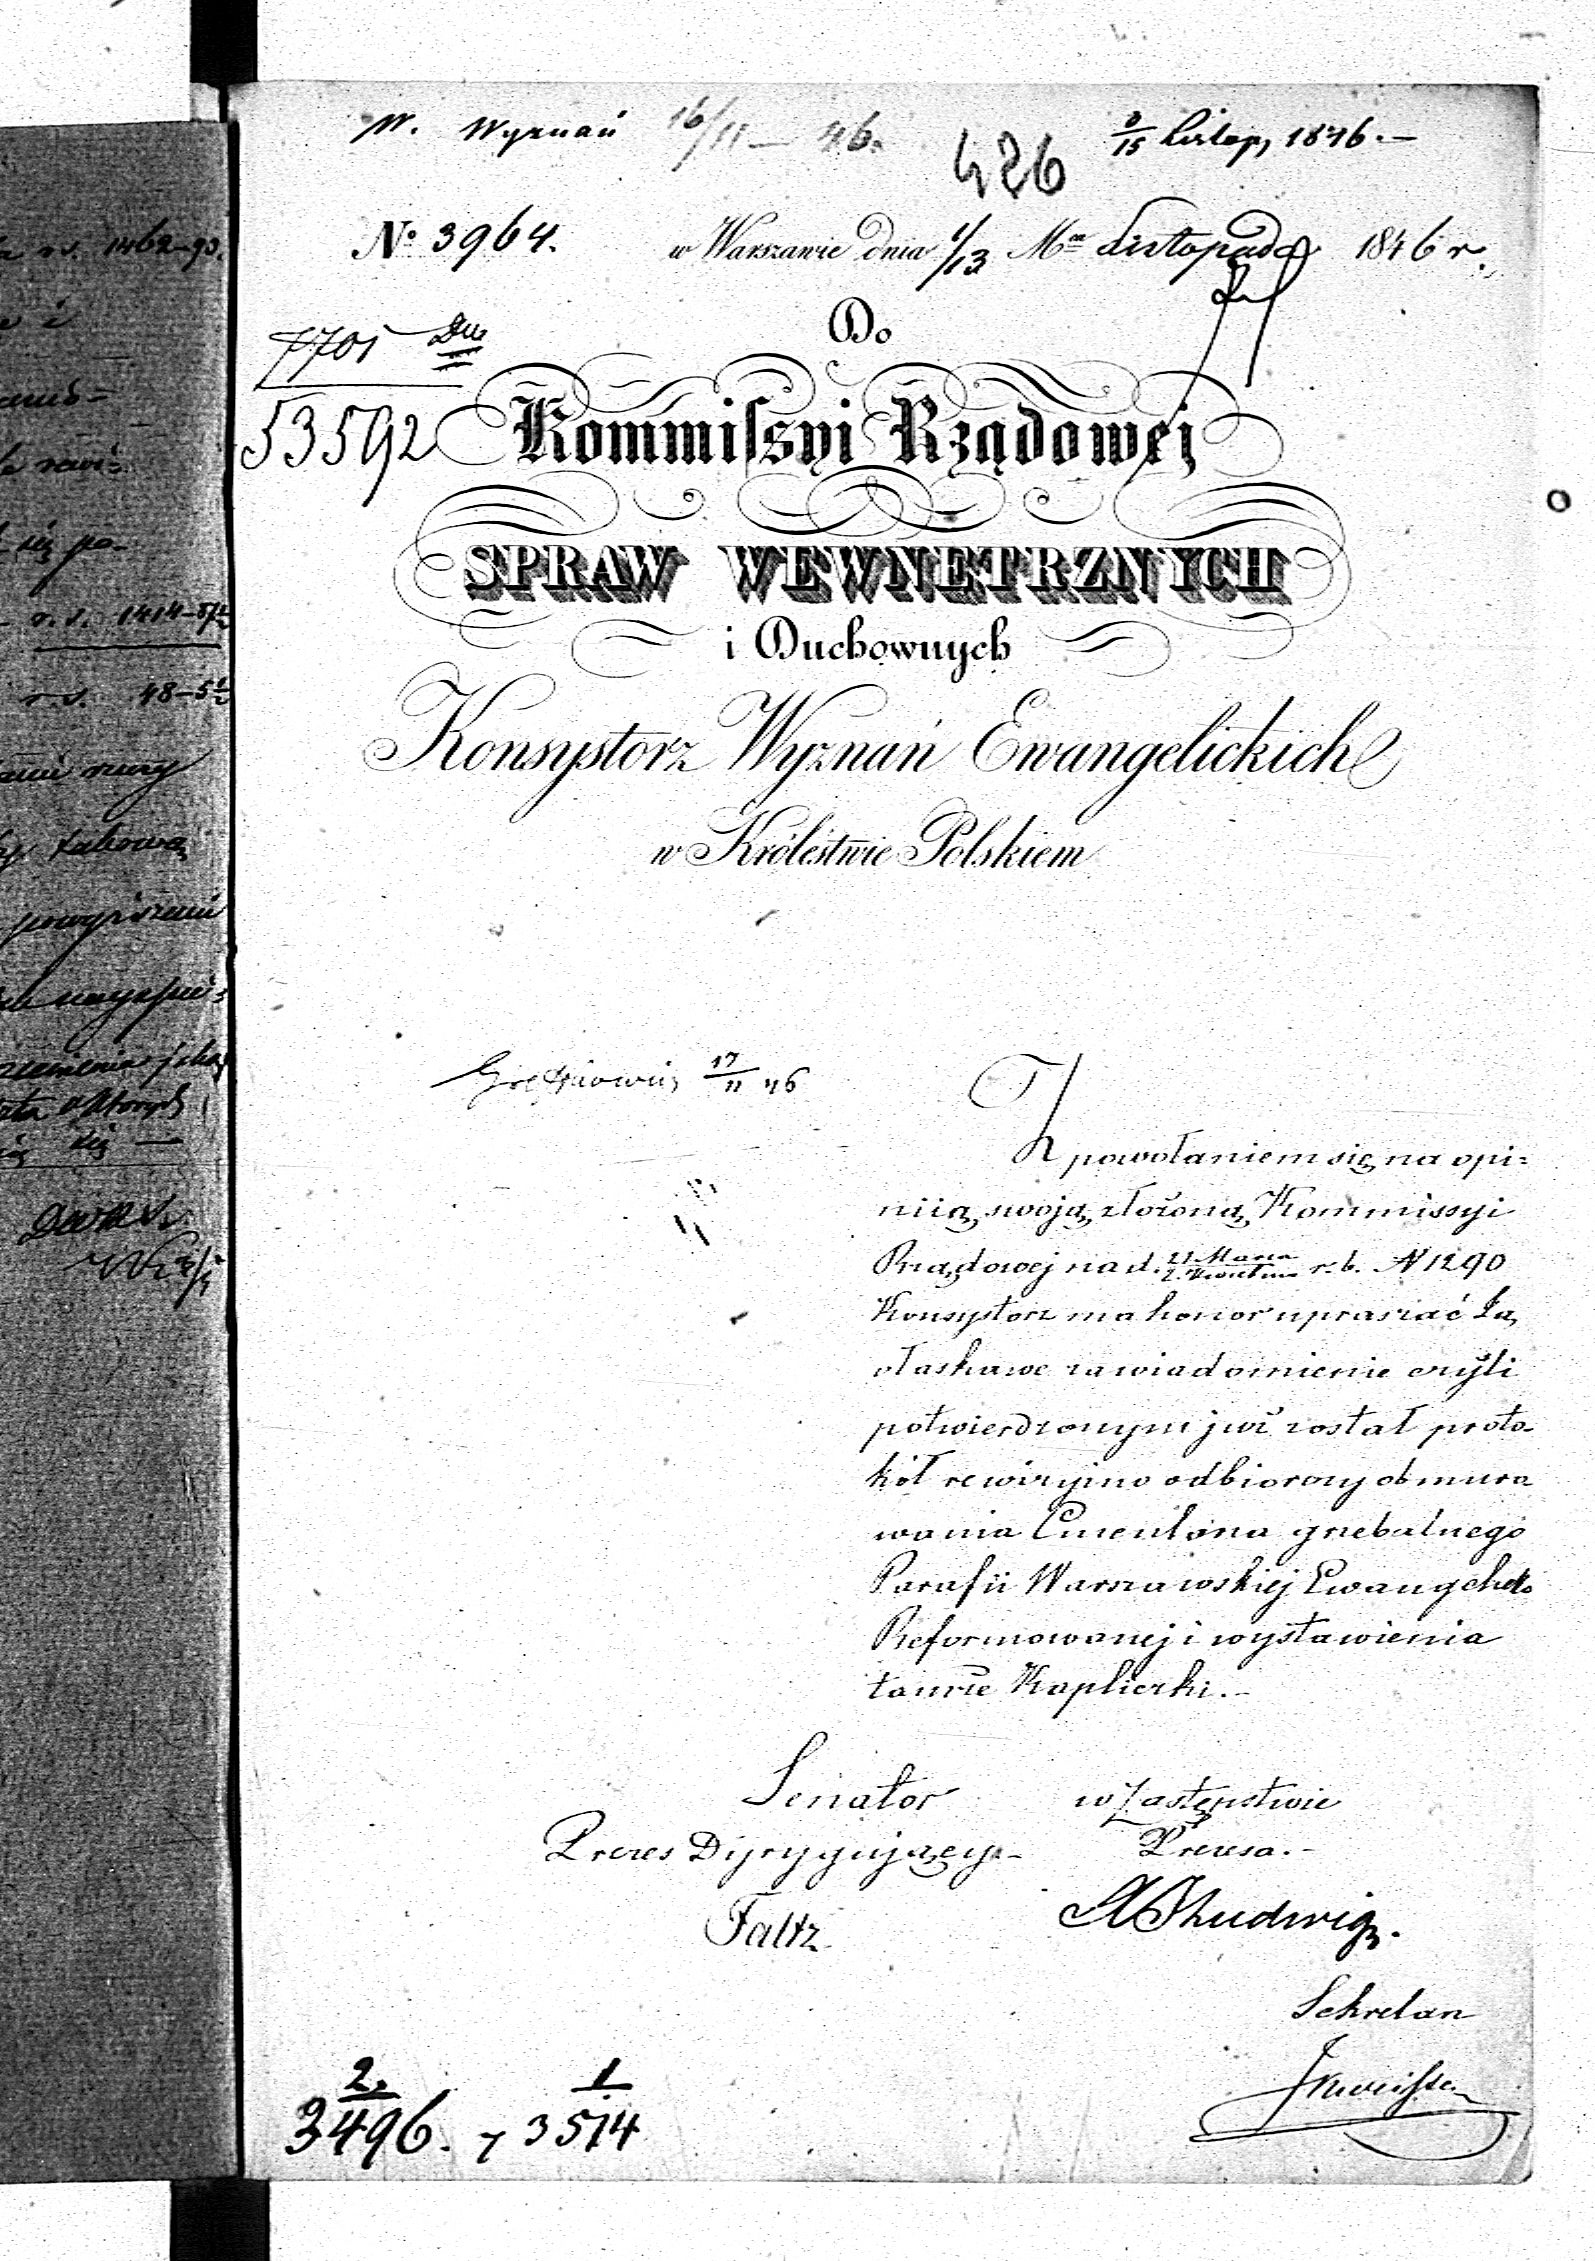 W. Wyznań 16/11 – 46.
3/15 Listop, 1846. –
426
No 3964.
w Warszawie dnia 1/13 Mca Listopada 1846 r.
7701
53592
Do
Kommissyi Rządowej
SPRAW WEWNĘTRZNYCH
i Duchownych
Konsystorz Wyznań Ewangelickich
w Królestwie Polskiem
17/11 46
Z powołaniem się na opi=
niią swoją złożoną Kommissyi
Rządowej na d. 21 Marca/2 Kwietnia r. b. N 1290
Konsystorz ma honor upraszać Ją
o łaskawe zawiadomienie czyli
potwierdzonym już został proto-
kół rewizyjno odbiorczy obmuro
wania Cmentarza grzebalnego
Parafii Warszawskiej Ewangelicko
Reformowanej i wystawienia
tamże Kapliczki. –
Senator
Prezes Dyrygujący. –
Faltz
w Zastępstwie
Prezesa. –
Ludwig.
Sekretarz
2.
3496. 1
3514
r. s. 1462–90.
się po-
r. s. 1414–
r. s. 48–5½
takową
się —